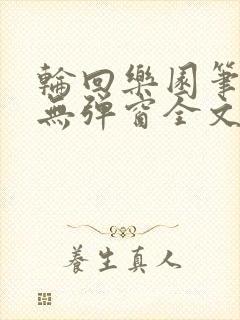 輪回樂園筆
無彈窗全文
養生真人